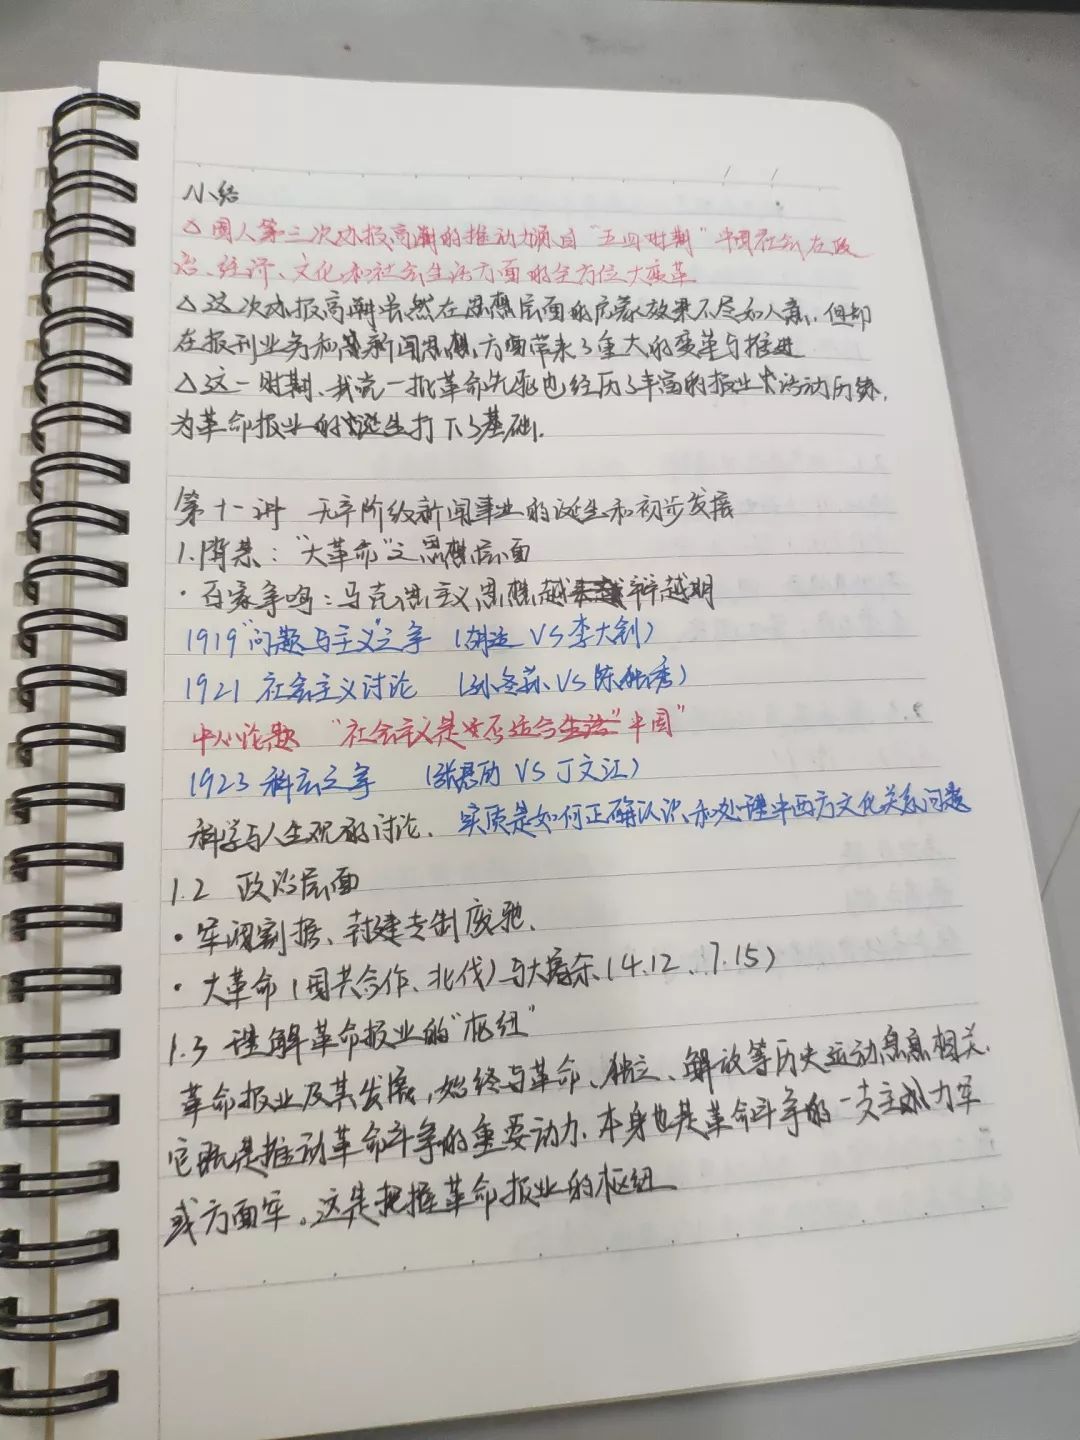 小结
△国人第三次办报高潮的推动力源自“五四时期”中国社会在政
治、经济、文化和社会生活方面的全方位大变革
△这次办报高潮虽然在思想层面的启蒙效果不尽如人意,但却
在报刊业务和新闻思想方面带来了重大的变革与推进
△这一时期、我党一批革命先驱也经历了丰富的报业活动历练,
为革命报业的诞生打下了基础.
第十一讲 无产阶级新闻事业的诞生和初步发展
1.背景:“大革命”之思想层面
·百家争鸣:马克思主义思想越辩越明
1919“问题与主义”之争 (胡适 VS 李大钊)
1921 社会主义讨论 (张东荪 VS 陈独秀)
中心论题 “社会主义是否适合中国”
1923 科玄之争 (张君劢 VS 丁文江)
科学与人生观的讨论. 实质是如何正确认识和处理中西方文化关系问题
1.2 政治层面
·军阀割据、封建专制废弛.
·大革命(国共合作、北伐)与大屠杀(4.12、7.15)
1.3 理解革命报业的“枢纽”
革命报业及其发展,始终与革命、独立、解放等历史运动息息相关.
它既是推动革命斗争的重要动力.本身也是革命斗争的一支主力军
或方面军。这是把握革命报业的枢纽